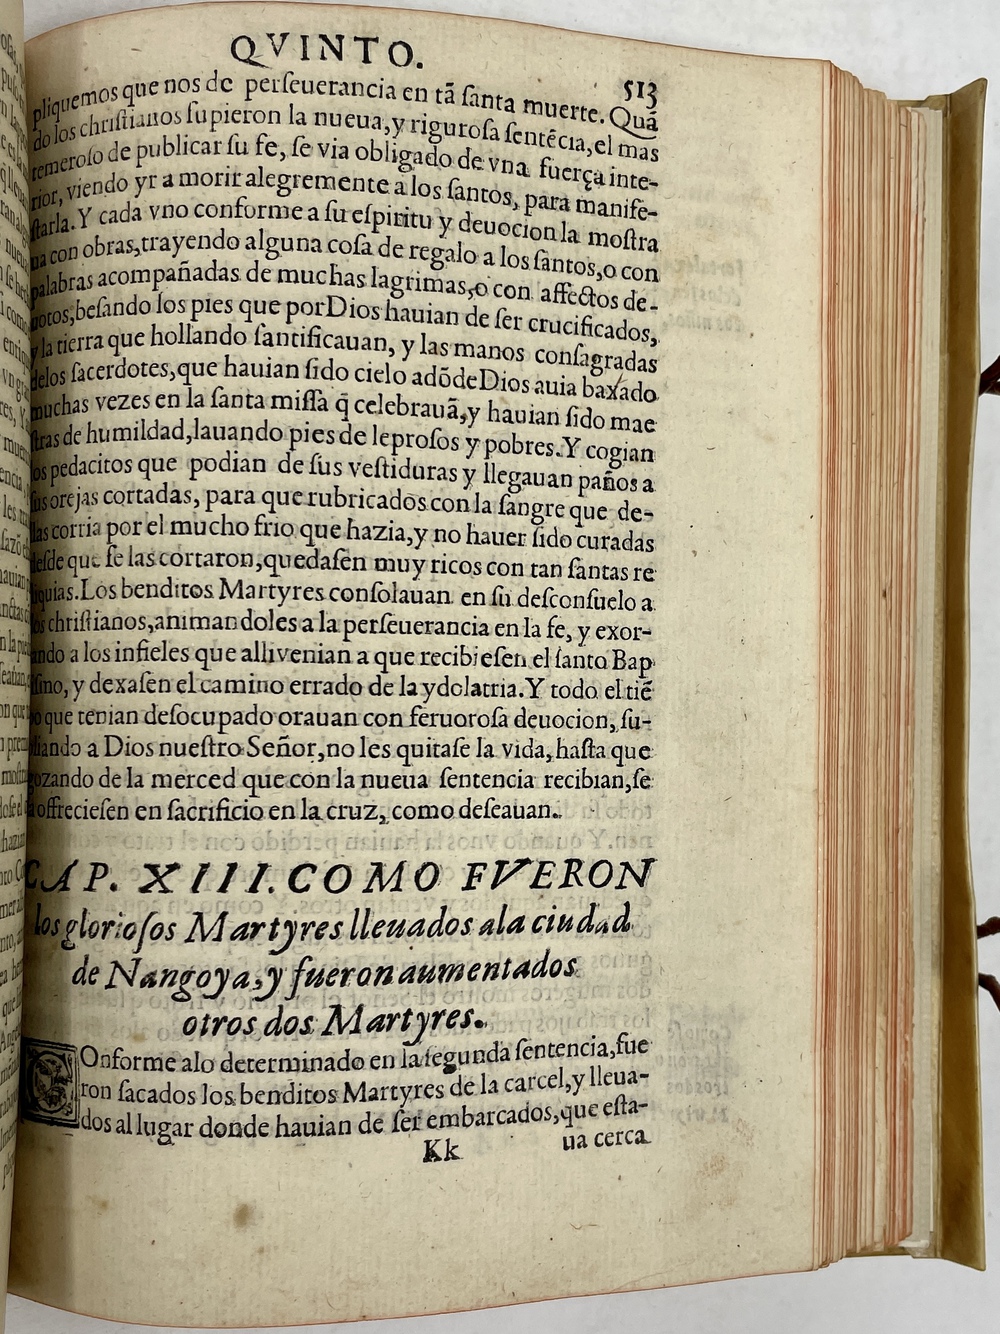 QVINTO.
513
pliquemos que nos de perſeuerancia en tã ſanta muerte. Quã
do los chriſtianos ſupieron la nueua, y riguroſa ſentẽcia, el mas
temeroſo de publicar ſu fe, ſe via obligado de vna fuerça inte-
rior, viendo yr a morir alegremente a los ſantos, para manife-
ſtarla. Y cada vno conforme a ſu eſpiritu y deuocion la moſtra
ua con obras, trayendo alguna coſa de regalo a los ſantos, o con
palabras acompañadas de muchas lagrimas, o con affectos de-
uotos, beſando los pies que por Dios hauian de ſer crucificados,
y la tierra que hollando ſantificauan, y las manos conſagradas
delos ſacerdotes, que hauian ſido cielo adõde Dios auia baxado
muchas vezes en la ſanta miſſa q̃ celebrauã, y hauian ſido mae
ſtras de humildad, lauando pies de leproſos y pobres. Y cogian
los pedacitos que podian de ſus veſtiduras y llegauan paños a
ſus orejas cortadas, para que rubricados con la ſangre que de-
llas corria por el mucho frio que hazia, y no hauer ſido curadas
deſde que ſe las cortaron, quedaſen muy ricos con tan ſantas re
liquias. Los benditos Martyres conſolauan en ſu deſconſuelo a
los chriſtianos, animandoles a la perſeuerancia en la fe, y exor-
tando a los infieles que alli venian a que recibieſen el ſanto Bap
tiſmo, y dexaſen el camino errado de la ydolatria. Y todo el tiẽ
po que tenian deſocupado orauan con feruoroſa deuocion, ſu-
pliando a Dios nueſtro Señor, no les quitaſe la vida, haſta que
gozando de la merced que con la nueua ſentencia recibian, ſe
offrecieſen en ſacrificio en la cruz, como deſeauan.
CAP. XIII. COMO FVERON
los glorioſos Martyres lleuados ala ciudad
de Nangoya, y fueron aumentados
otros dos Martyres.
COnforme alo determinado en la ſegunda ſentencia, fue
ron ſacados los benditos Martyres de la carcel, y lleua-
dos al lugar donde hauian de ſer embarcados, que eſta-
Kk ua cerca